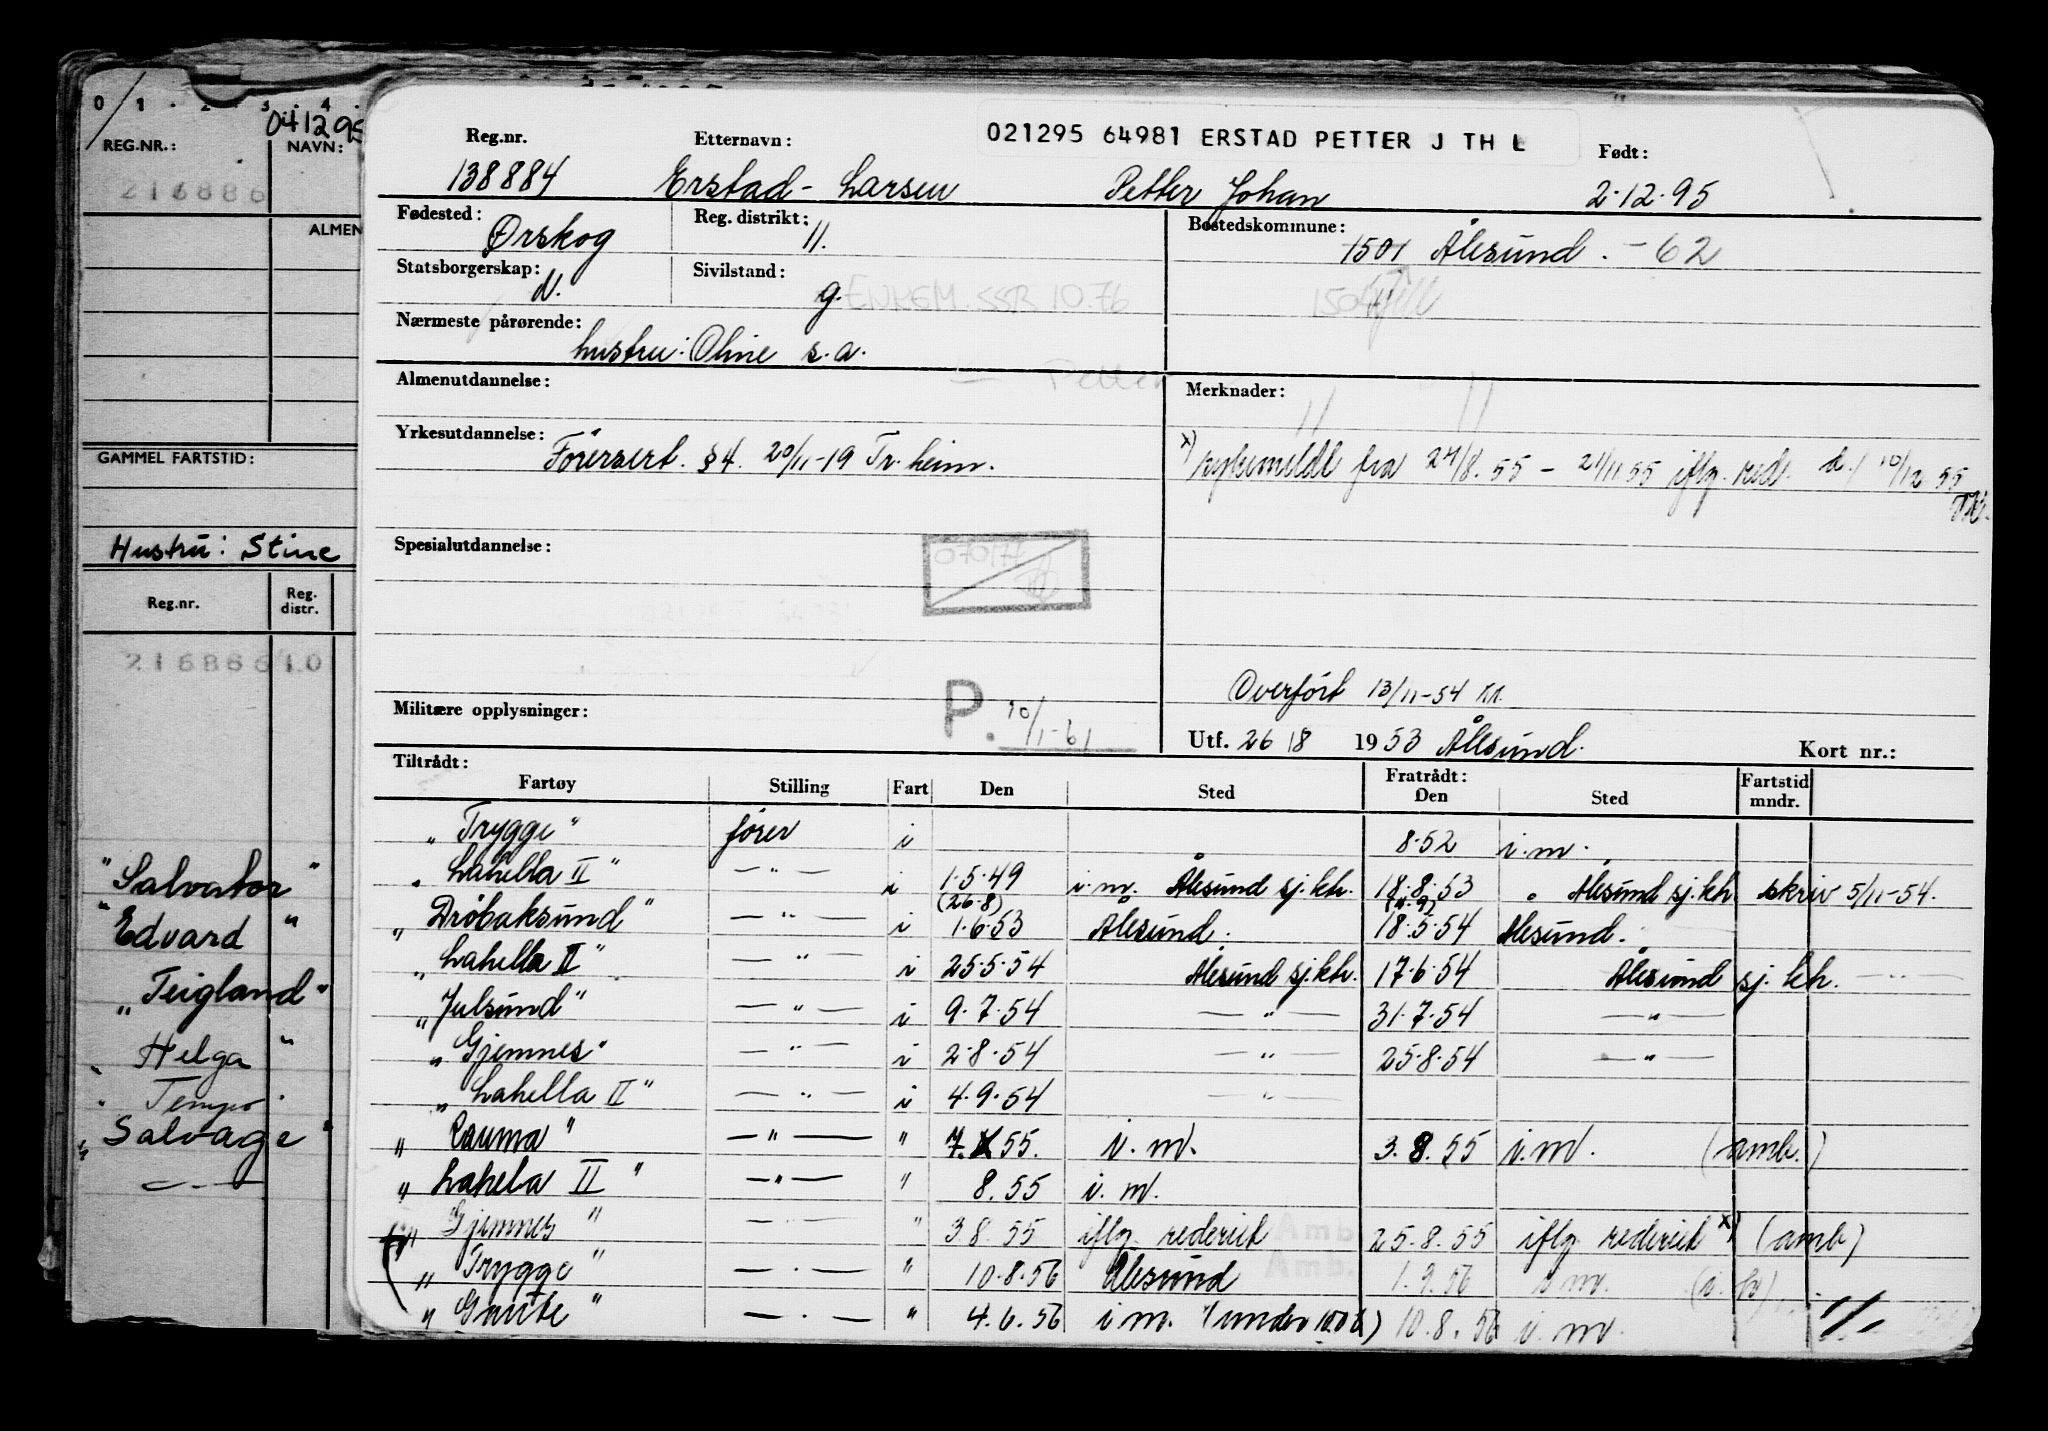 0 1 . 2 . 3 . 4 .
041295
REG.NR.: NAVN:
216886
ALMEN
GAMMEL FARTSTID:
Hustru: Stine
Reg.nr. Reg. distr.
216886 10
"Salvator"
"Edvard"
"Teigland"
"Helga"
"Tempo"
"Salvage"
021295 64981 ERSTAD PETTER J TH L
Reg.nr. Etternavn: Født:
138884 Erstad-Larsen Petter Johan 2.12.95
Fødested: Ørskog Reg. distrikt: 11. Bostedskommune: 1501 Ålesund. -62
Statsborgerskap: N. Sivilstand: g. ENKEM. SSB 10.76 1504
Nærmeste pårørende: hustru: Oline s.a.
Petter
Almenutdannelse: Merknader:
Yrkesutdannelse: Førersert. §4. 20/11-19 Tr.heim.
x) sykemeldt fra 24/8.55 - 21/11 55 iflg. red. d./ 10/12 55
Spesialutdannelse:
Overført 13/11-54
Militære opplysninger: P. 10/1-61
Utf. 26/8 1953 Ålesund. Kort nr.:
Tiltrådt: Fratrådt: Fartstid
Fartøy Stilling Fart Den Sted Den Sted mndr.
"Trygge" fører i 8.52 i.m.
"Lahella II" —"— i 1.5.49 i.m. Ålesund sj.kh. 18.8.53 " Ålesund sj.kh. skriv 5/11-54.
(26.8)
"Drøbaksund" —"— i 1.6.53 Ålesund. 18.5.54 Ålesund.
"Lahella II" —"— i 25.5.54 Ålesund sj.kh. 17.6.54 Ålesund sj.kh. —"—
"Julsund" —"— i 9.7.54 —"— 31.7.54 —"—
"Gjemnes" —"— i 2.8.54 —"— 25.8.54 —"—
"Lahella II" —"— i 4.9.54 —"—
"Rauma" —"— " 7. 55. i.m. 3.8.55 i.m. (amb.)
"Lahela II" —"— " 8.55 i.m.
"Gjemnes" —"— " 3 8.55 iflg. rederiet Amb 25.8.55 iflg. rederiet x) (amb)
"Trygge" —"— " 10.8.56 Ålesund Amb. 1.9.56 i.m.
"Gaute" —"— " 4.6.56 i.m. (under 100 t) 10.8.56 i.m.